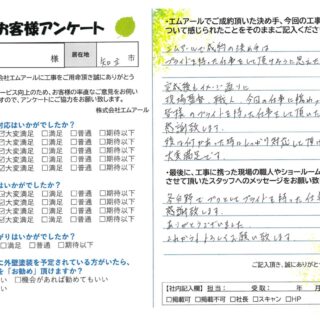 お客様アンケート
様
居住地
市
株式会社エムアールに工事をご用命頂き誠にありがとう
サービス向上のため、お客様の率直なご意見をお伺い
ますので、アンケートにご協力をお願い致します。
株式会社エムアール
対応はいかがでしたか?
☑大変満足 □満足 □普通 □期待以下
☑大変満足 □満足 □普通 □期待以下
☑大変満足 □満足 □普通 □期待以下
☑大変満足 □満足 □普通 □期待以下
はいかがでしたか?
□満足 □普通 □期待以下
はいかがでしたか?
□満足 □普通 □期待以下
に外壁塗装を予定されている方がいたら、
を「お勧め」頂けますか?
い □機会があれば勧めてもいい
・エムアールでご成約頂いた決め手、今回の工事に
ついて感じられたことをそのままご記入ください
エムアールが成約の決め手は
プライドを持った仕事をして頂けそうと思えた
完成後もイメージ通りに
現場監督、職人、今回の仕事に携わ
皆様のプライドを持った仕事をして頂いた
感謝致します。
大変満足です。
・最後に、工事に携った現場の職人やショールーム
させて頂いたスタッフへのメッセージをお願い致
各分野でプロとしてプライドを持った仕事
感謝致します。
ありがとうございました
これからもよろしくお願い致します
ご記入頂き、誠にありがとう
【社内記入欄】担当: 受取: 年 月
□掲載可 □掲載不可 □社長 □スキャン □HP